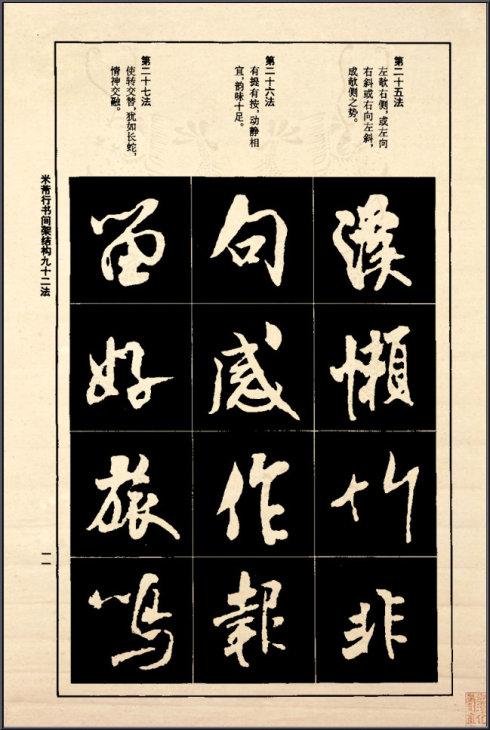 第二十五法
左欹右侧，或左向
右斜或右向左斜，
成欹侧之势。
汉
懒
竹
非
第二十六法
有提有按，动静相
宜，韵味十足。
句
感
作
報
第二十七法
使转交替，犹如长蛇，
情神交融。
留
好
旅
鸣
米芾行书间架结构九十二法
一一